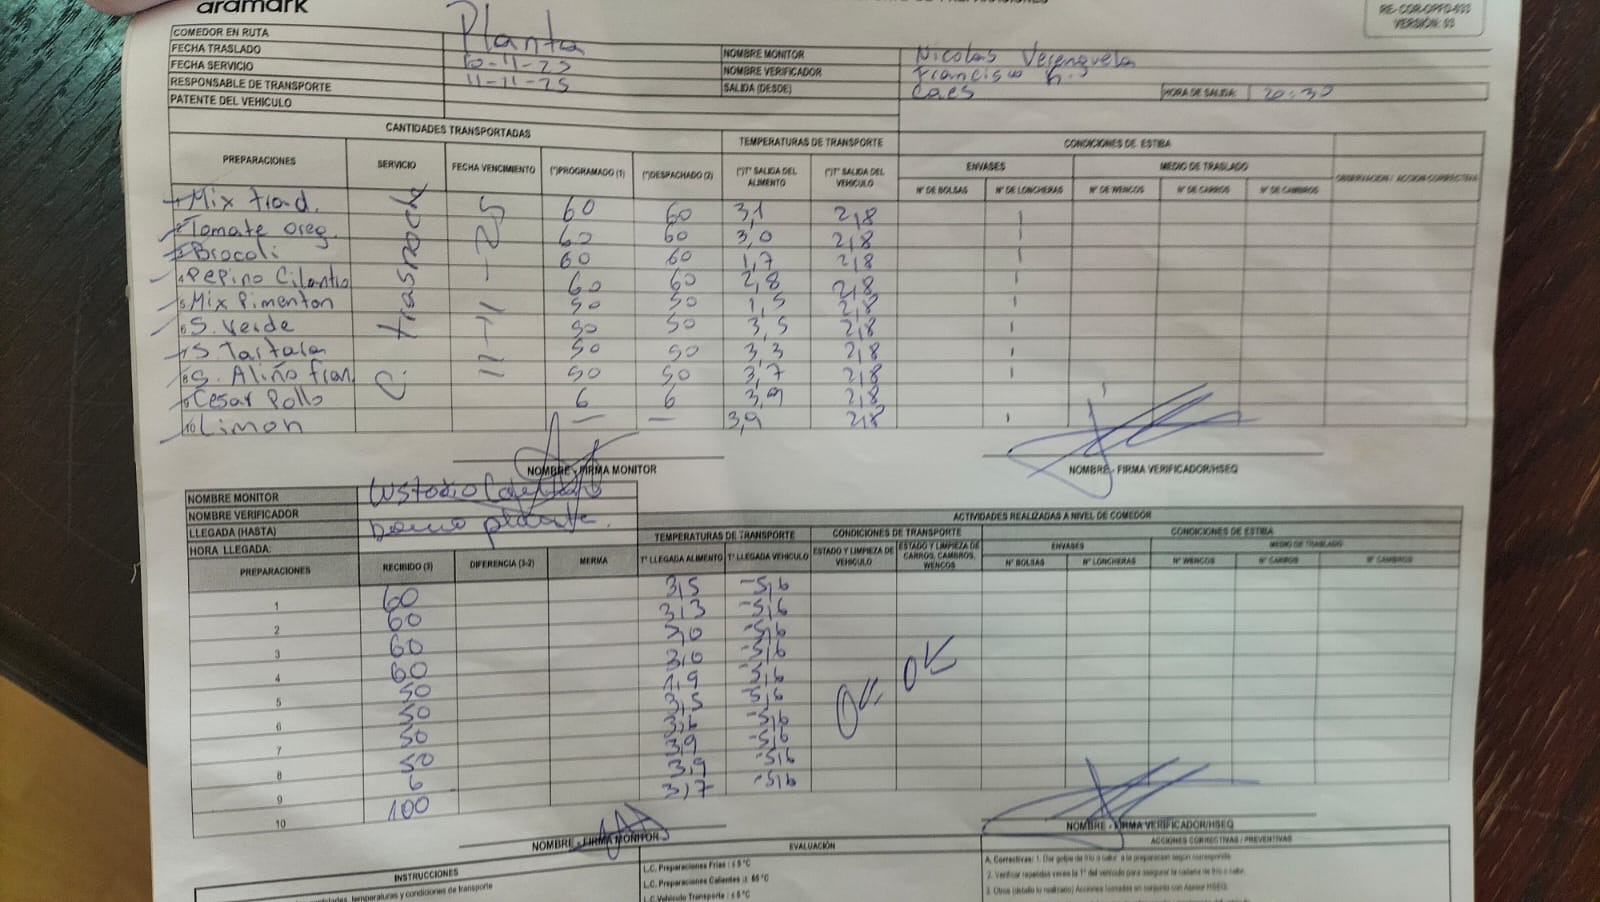 aramark
RE-COR-OPFD-033
VERSIÓN: 03
COMEDOR EN RUTA Planta
FECHA TRASLADO 10-11-25 NOMBRE MONITOR Nicolas Verenguela
FECHA SERVICIO 11-11-25 NOMBRE VERIFICADOR Francisco h.
RESPONSABLE DE TRANSPORTE SALIDA (DESDE) Caes HORA DE SALIDA: 20:30
PATENTE DEL VEHICULO
CANTIDADES TRANSPORTADAS TEMPERATURAS DE TRANSPORTE CONDICIONES DE ESTIBA
PREPARACIONES SERVICIO FECHA VENCIMIENTO (*)PROGRAMADO (1) (*)DESPACHADO (2) (*)T° SALIDA DEL ALIMENTO (*)T° SALIDA DEL VEHICULO ENVASES MEDIO DE TRASLADO OBSERVACION / ACCION CORRECTIVA
N° DE BOLSAS N° DE LONCHERAS N° DE WENCOS N° DE CARROS N° DE CAMBROS
C. trasnoche
11-11-25
1 Mix trad. 60 60 3,1 2,8 1
2 Tomate oreg. 60 60 3,0 2,8 1
3 Brocoli 60 60 1,7 2,8
4 Pepino Cilantro 60 60 2,8 2,8 1
5 Mix Pimenton 50 50 1,5 2,8 1
6 S. Verde 50 50 3,5 2,8 1
7 S. Tartara 50 50 3,3 2,8 1
8 S. Aliño fran. 50 50 3,7 2,8 1
9 Cesar Pollo 6 6 3,9 2,8 1
10 Limon — — 3,9 2,8 1
NOMBRE - FIRMA MONITOR NOMBRE - FIRMA VERIFICADOR/HSEQ
NOMBRE MONITOR Custodio
NOMBRE VERIFICADOR
LLEGADA (HASTA) planta. ACTIVIDADES REALIZADAS A NIVEL DE COMEDOR
HORA LLEGADA: TEMPERATURAS DE TRANSPORTE CONDICIONES DE TRANSPORTE CONDICIONES DE ESTIBA
PREPARACIONES RECIBIDO (3) DIFERENCIA (3-2) MERMA T° LLEGADA ALIMENTO T° LLEGADA VEHICULO ESTADO Y LIMPIEZA DE VEHICULO ESTADO Y LIMPIEZA DE CARROS, CAMBROS, WENCOS ENVASES MEDIO DE TRASLADO
N° BOLSAS N° LONCHERAS N° WENCOS N° CARROS N° CAMBROS
1 60 3,5 -5,6
2 60 3,3 -5,6
3 60 3,0 -5,6
4 60 3,0 -5,6
5 50 1,9 -5,6
6 50 3,5 -5,6
7 50 -5,6
8 50 3,9 -5,6
9 6 3,9 -5,6
10 100 3,7 -5,6
OK OK
NOMBRE - FIRMA MONITOR NOMBRE - FIRMA VERIFICADOR/HSEQ
INSTRUCCIONES EVALUACIÓN ACCIONES CORRECTIVAS / PREVENTIVAS
temperaturas y condiciones de transporte
L.C. Preparaciones Frías : ≤ 5 °C
L.C. Preparaciones Calientes :≥ 65 °C
L.C. Vehículo Transporte : ≤ 5 °C
A. Correctivas: 1. Dar golpe de frío o calor a la preparación según corresponda.
2. Verificar repetidas veces la T° del vehículo para asegurar la cadena de frío o calor.
3. Otros (detalle lo realizado) Acciones tomadas en conjunto con Asesor HSEQ.